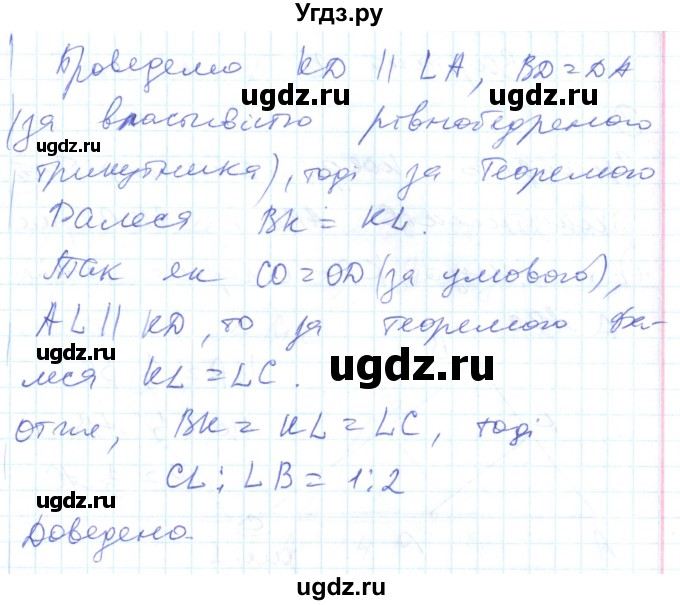 Угдз.ру
Проведемо KD || LA, BD = DA
ugdz.ru ugdz.ru
(за властивістю рівнобедреного
ugdz.ru ugdz.ru
трикутника), тоді за теоремою
Фалеса BK = KL.
ugdz.ru ugdz.ru
Так як CO = OD (за умовою),
AL || KD, то за теоремою Фа-
ugdz.ru ugdz.ru
леса KL = LC.
ugdz.ru
Отже, BK = KL = LC, тоді
CL : LB = 1:2
ugdz.ru ugdz.ru
Доведено.
ugdz.ru